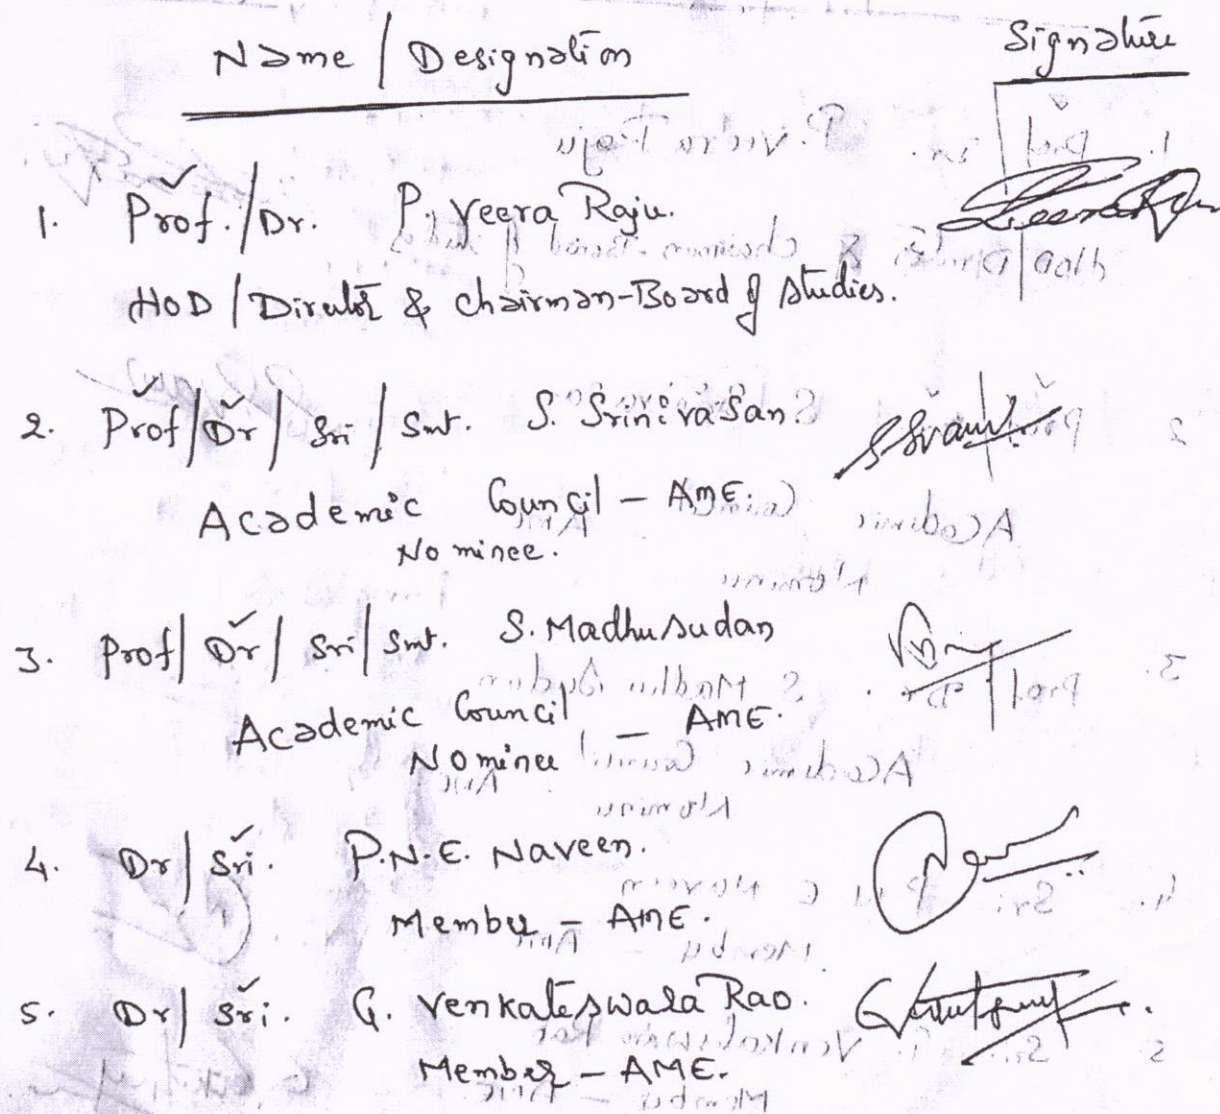 Name / Designation Signature
1. Prof. / Dr. P. Veera Raju.
HOD / Director & Chairman-Board of Studies.
2. Prof / Dr / Sri / Smt. S. Srinivasan.
Academic Council - AME.
Nominee.
3. Prof / Dr / Sri / Smt. S. Madhusudan
Academic Council - AME.
Nominee
4. Dr / Sri. P.N.E. Naveen.
Member - AME.
5. Dr / Sri. G. Venkateswala Rao.
Member - AME.